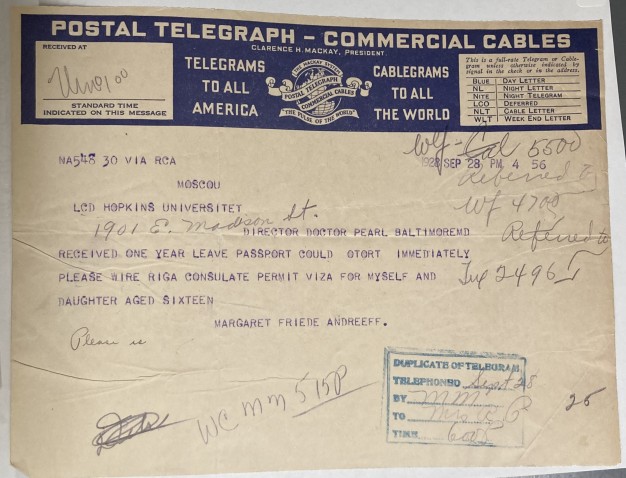 POSTAL TELEGRAPH - COMMERCIAL CABLES
CLARENCE H. MACKAY, PRESIDENT.
RECEIVED AT
STANDARD TIME
INDICATED ON THIS MESSAGE
TELEGRAMS
TO ALL
AMERICA
THE MACKAY SYSTEM
POSTAL TELEGRAPH
COMMERCIAL CABLES
"THE PULSE OF THE WORLD"
CABLEGRAMS
TO ALL
THE WORLD
This is a full-rate Telegram or Cable-
gram unless otherwise indicated by
signal in the check or in the address.
BLUE DAY LETTER
NL NIGHT LETTER
NITE NIGHT TELEGRAM
LCO DEFERRED
NLT CABLE LETTER
WLT WEEK END LETTER
Wf - Cal 5500
1928 SEP 28 PM 4 56
Referred to
Wf 4700
Referred to
NA548 30 VIA RCA
MOSCOU
LCD HOPKINS UNIVERSITET
1901 E. Madison St.
DIRECTOR DOCTOR PEARL BALTIMOREMD
RECEIVED ONE YEAR LEAVE PASSPORT COULD OTORT IMMEDIATELY
PLEASE WIRE RIGA CONSULATE PERMIT VIZA FOR MYSELF AND
2496
DAUGHTER AGED SIXTEEN
MARGARET FRIEDE ANDREEFF.
Please
WC MM 515P
DUPLICATE OF TELEGRAM
TELEPHONED Sept 28
BY MM
TO Mrs
TIME
25